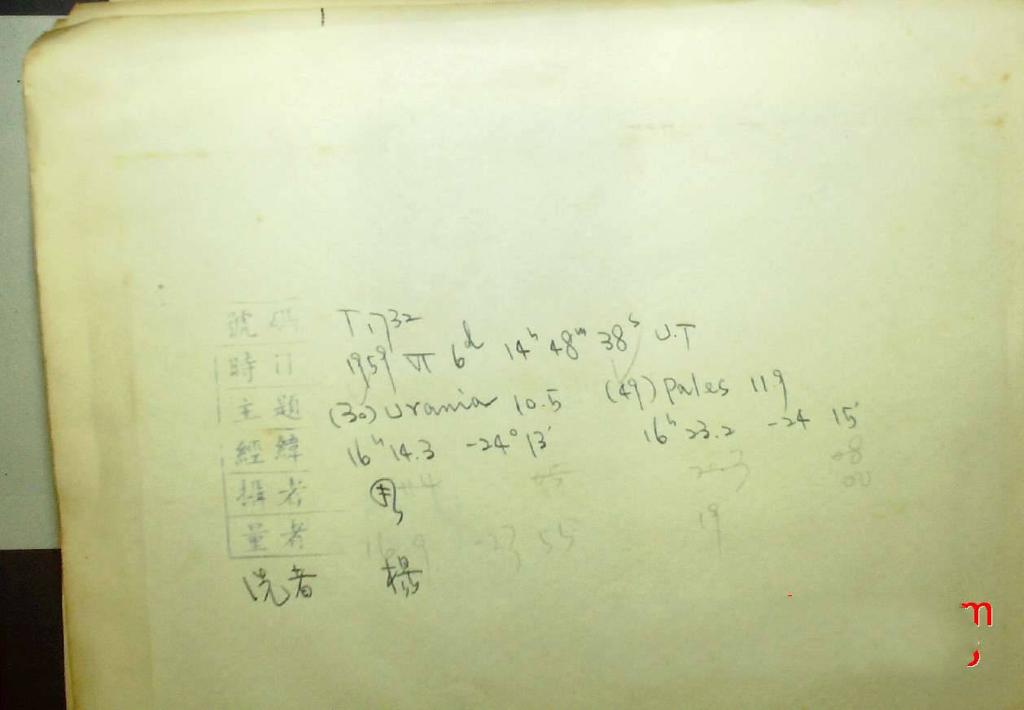 號碼 T1732
時间 1959 VI 6d 14h 48m 38s U.T
主題 (30) Urania 10.5 (49) Pales 119
經緯 16h 14.3 -24° 13' 16h 23.2 -24 15'
攝者
量者
洗者 楊